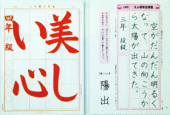 美しい心
四年 級
空がだんだん明るく
なって、山の向こうか
ら太陽が出てきた。
三年 段級
陽出